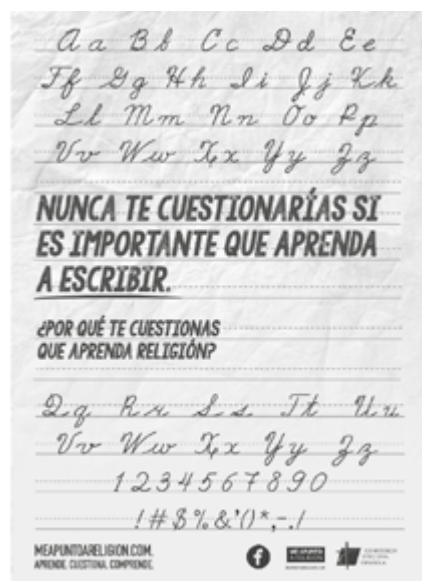 Aa Bb Cc Dd Ee
Ff Gg Hh Ii Jj Kk
Ll Mm Nn Oo Pp
Vv Ww Xx Yy Zz
NUNCA TE CUESTIONARÍAS SI
ES IMPORTANTE QUE APRENDA
A ESCRIBIR.
¿POR QUÉ TE CUESTIONAS
QUE APRENDA RELIGIÓN?
Qq Rr Ss Tt Uu
Vv Ww Xx Yy Zz
1234567890
!#$%&'()*,-./
MEAPUNTOARELIGION.COM.
APRENDE. CUESTIONA. COMPRENDE.
f
ME APUNTO